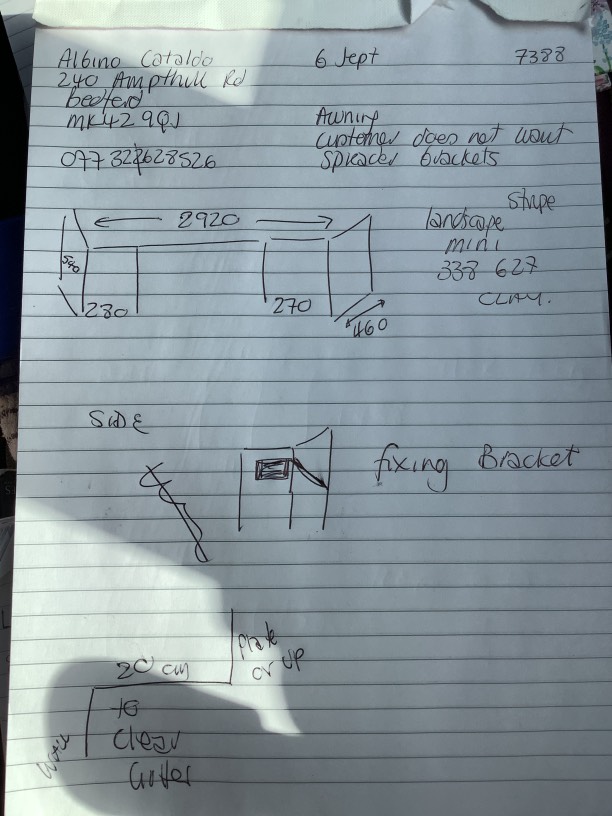 Albino Cataldo
240 Ampthill Rd
bedford
MK42 9QJ
6 Sept
7388
Awning
customer does not want
spreader brackets
2920
280
270
460
Shape
landscape
mini
338 627
CLAY.
SIDE
fixing Bracket
20 cm
plate
or up
to
Clear
Gutter